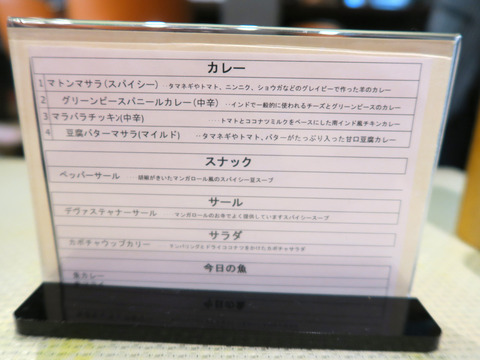 カレー
1 マトンマサラ(スパイシー) ・・タマネギやトマト、ニンニク、ショウガなどのグレイビーで作った羊のカレー
2 グリーンピースパニールカレー(中辛) ・・インドで一般的に使われるチーズとグリーンピースのカレー
3 マラバラチッキン(中辛) ・・トマトとココナツミルクをベースにした南インド風チキンカレー
4 豆腐バターマサラ(マイルド) ・・タマネギやトマト、バターがたっぷり入った甘口豆腐カレー
スナック
ペッパーサール 胡椒がきいたマンガロール風のスパイシー豆スープ
サール
デヴァスティャナーサール マンガロールのお寺でよく提供していますスパイシースープ
サラダ
カボチャウップカリー テンパリングとドライココナツをかけたカボチャサラダ
今日の魚
魚カレー